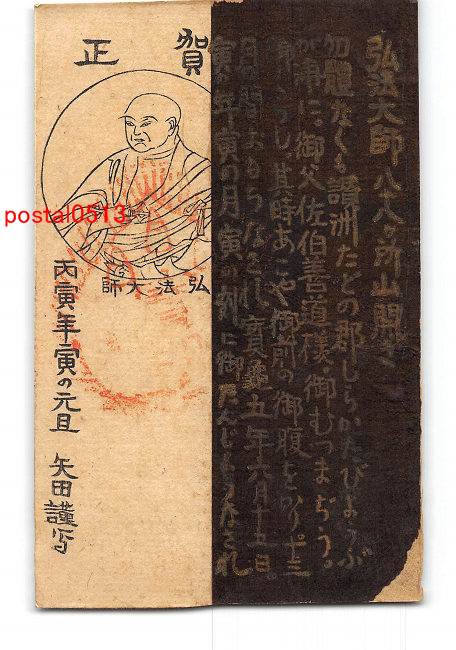 賀正
弘法大師
丙寅年寅の元旦 矢田謹写
弘法大師八十八ヶ所山開き
讃洲たどの郡しらかたびょうぶ
が浦に、御父佐伯善道様、御むつまぢう。
し、其時あこや御前の御腹をかり十三
月の間 され、寶龜五年六月十五日。
寅の年寅の月寅の刻に御たんじょうなされ
postal0513